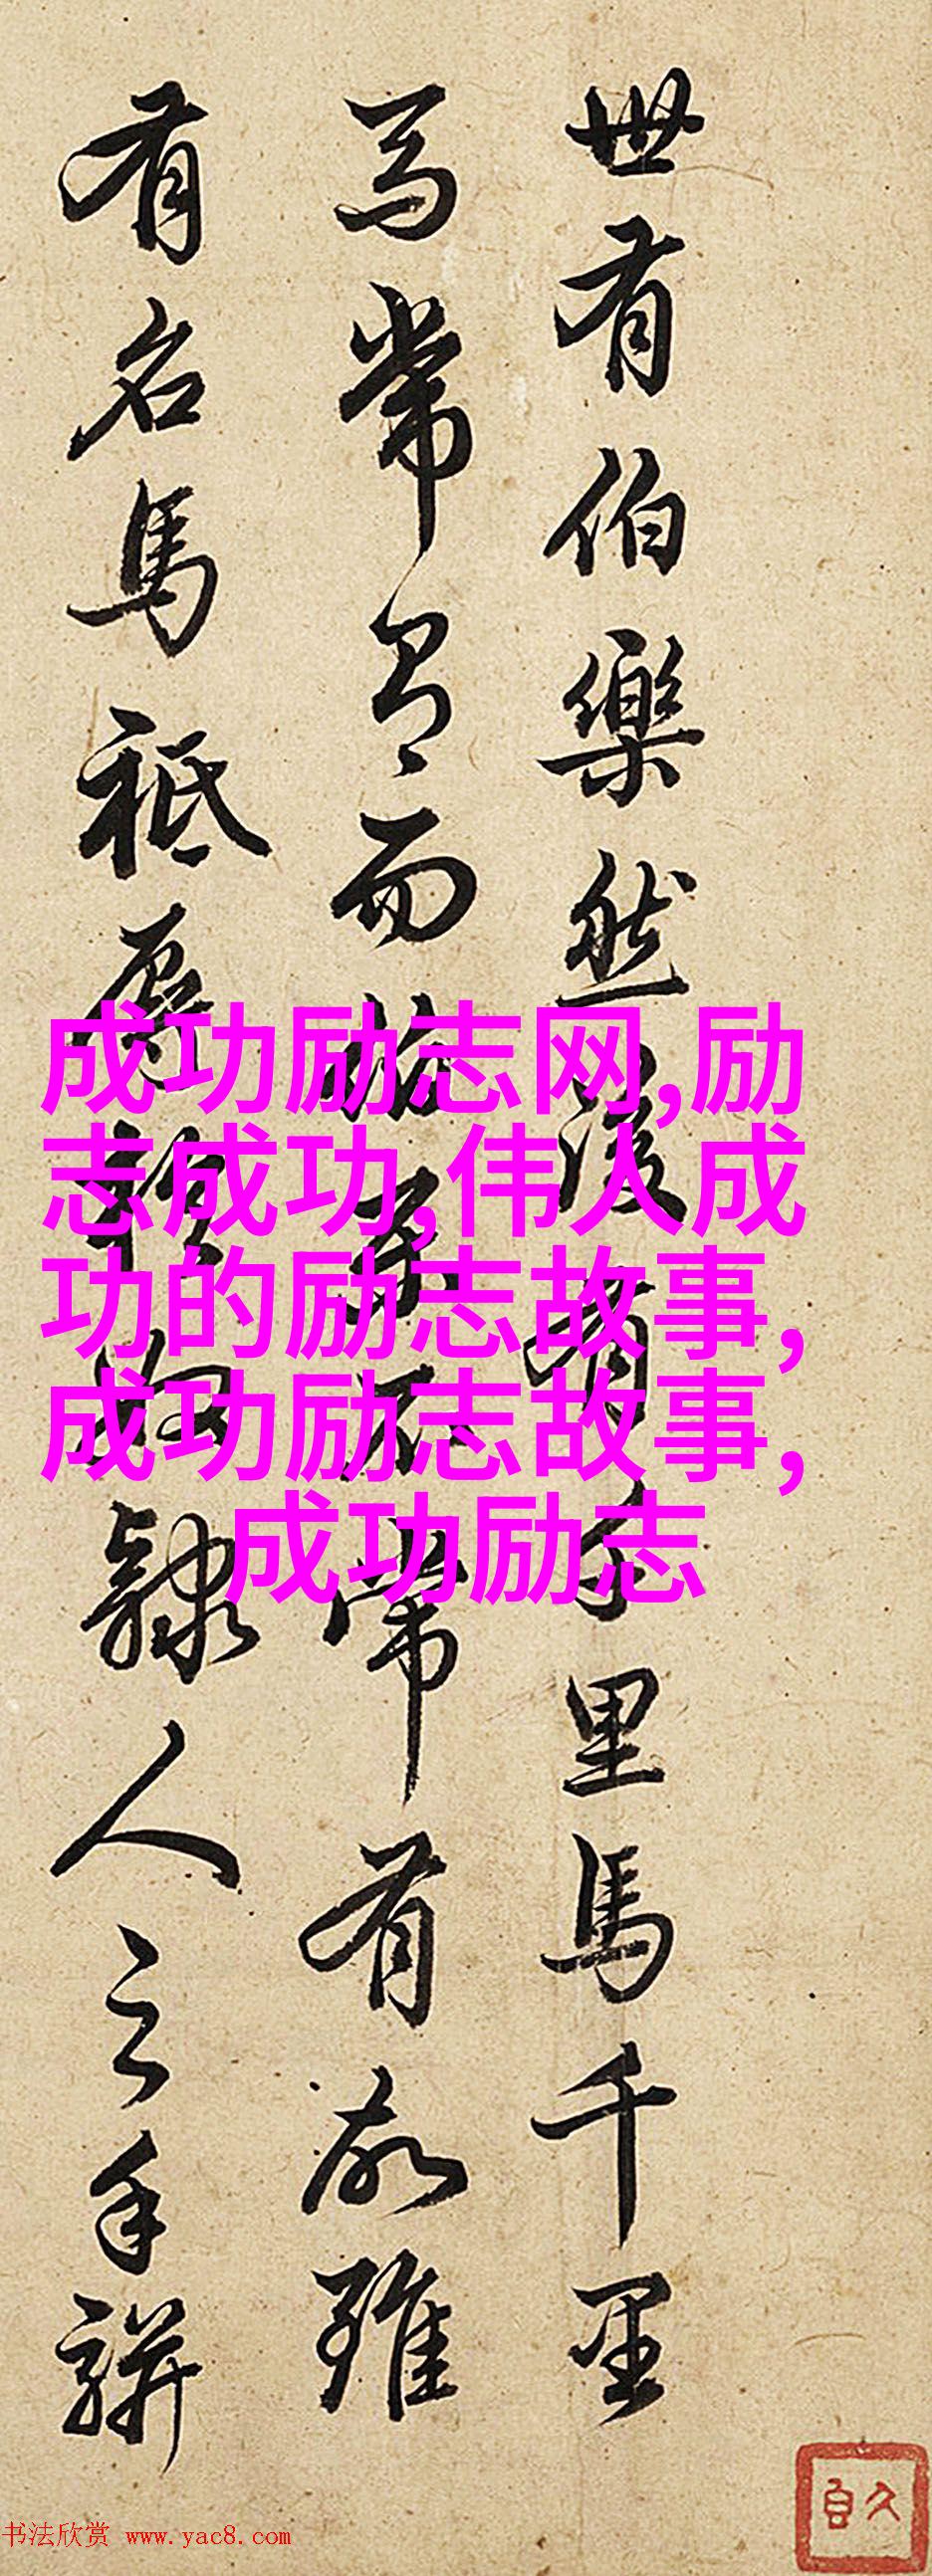 世有伯樂然後有千里馬千里
馬常有而伯樂不常有故雖
有名馬祇辱於奴隸人之手駢
成功励志网,励
志成功,伟人成
功的励志故事,
成功励志故事,
成功励志
书法欣赏 www.yac8.com